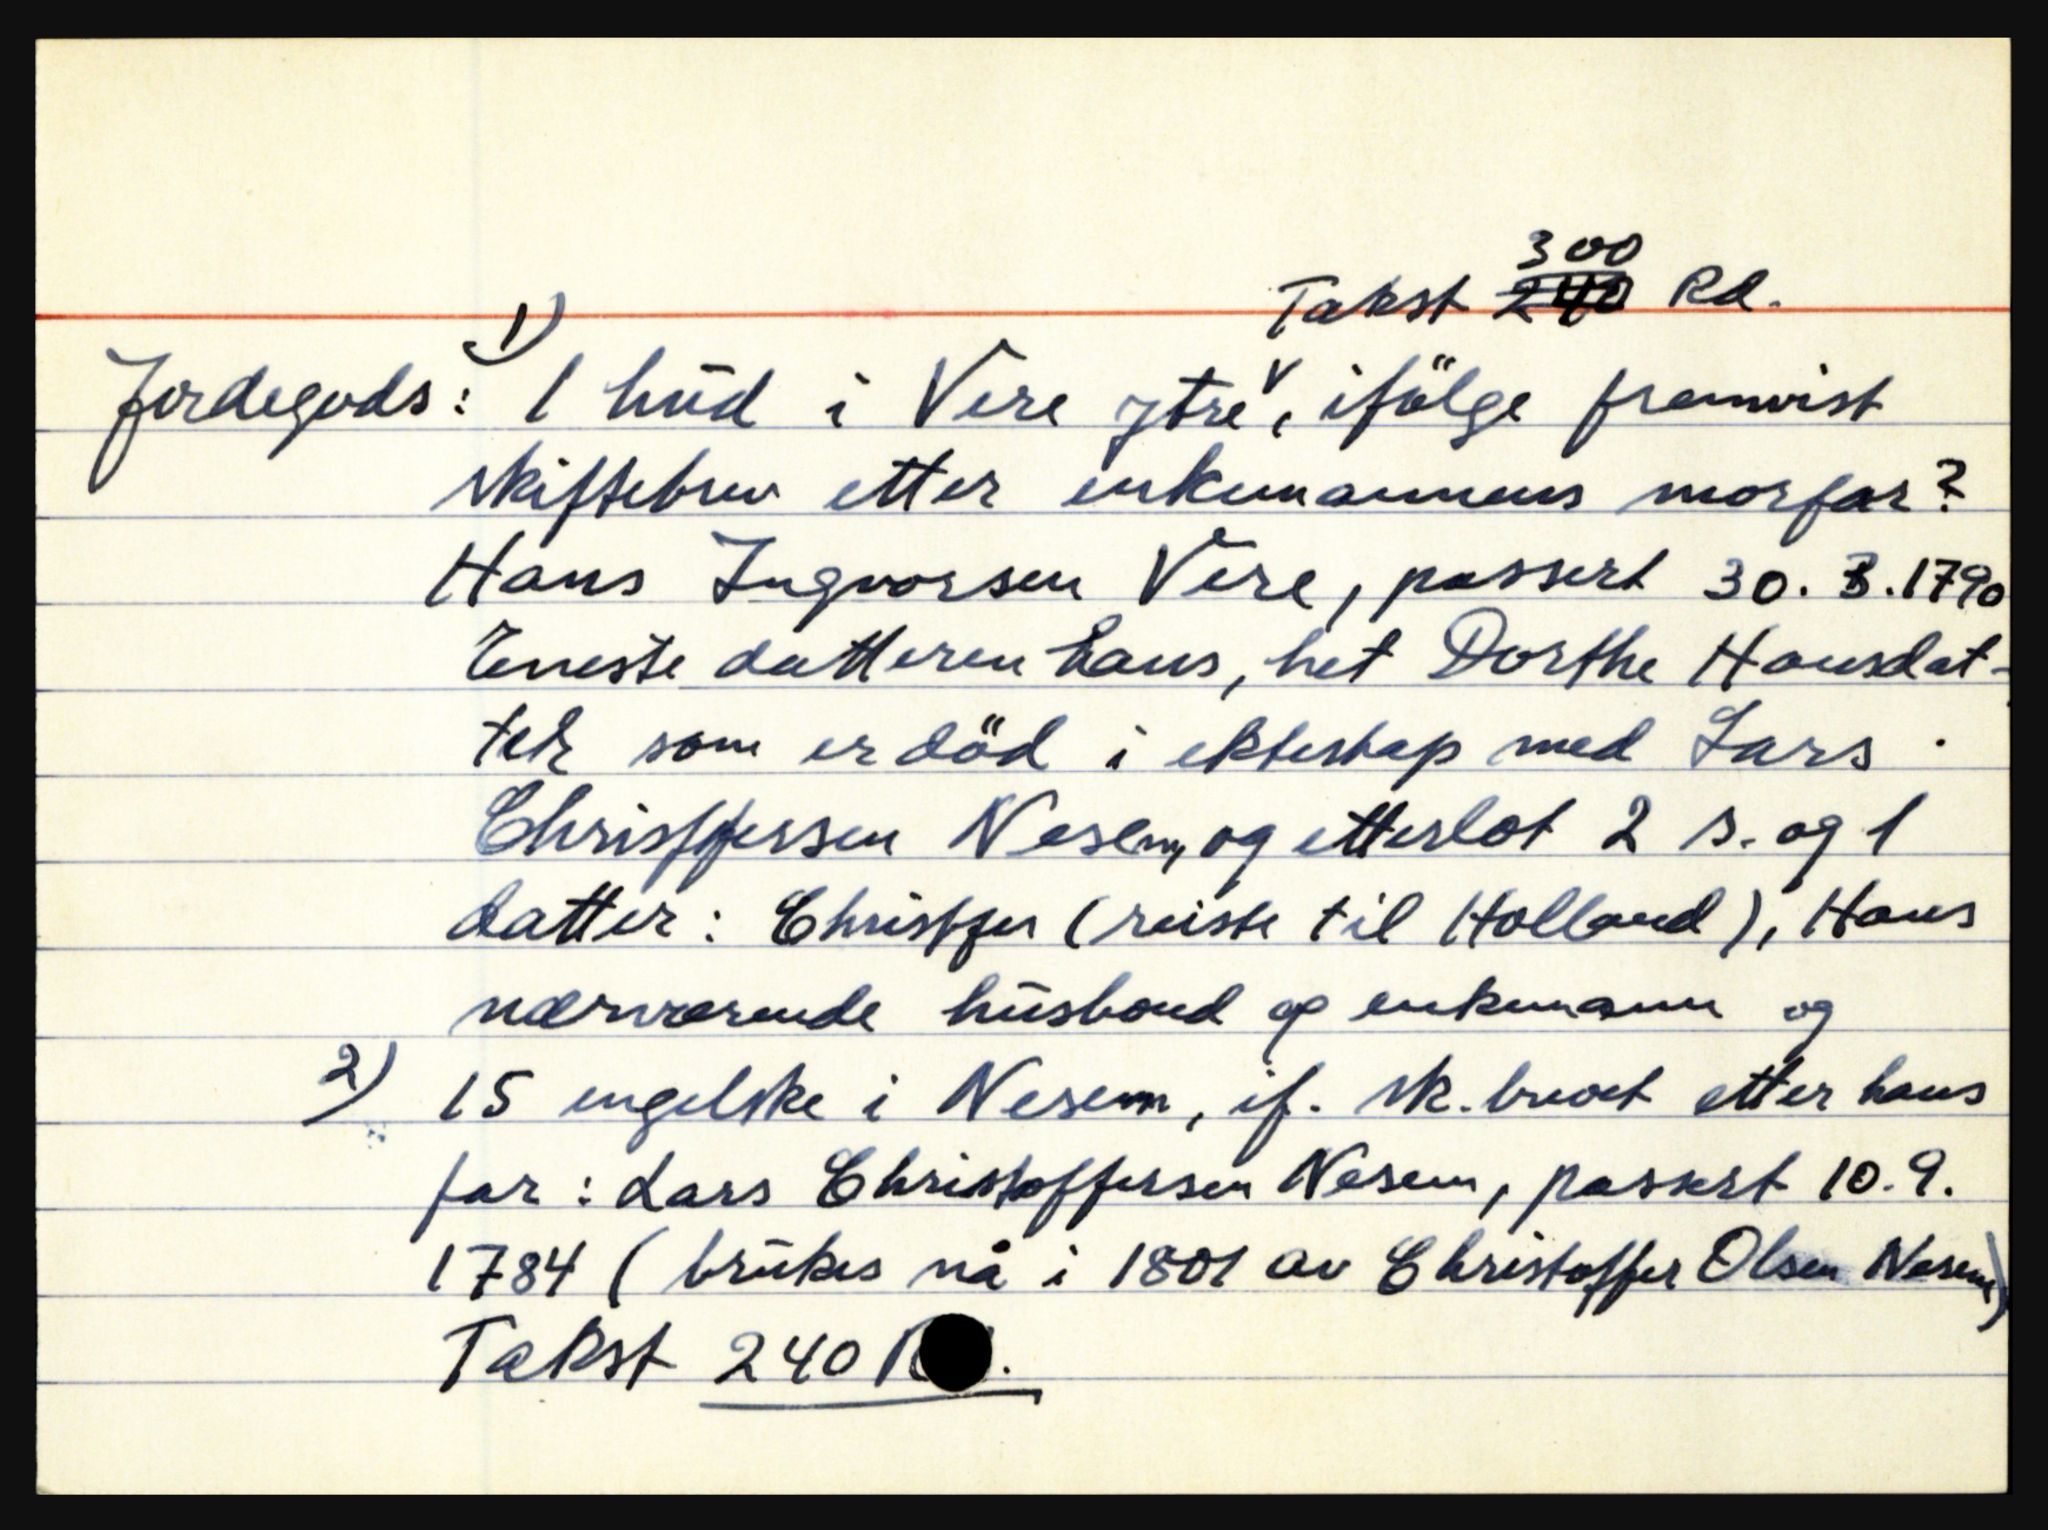 300
Takst 240 Rd.
1)
Jordegods: 1 hud i Vere ytre v, ifölge fremvist
skiftebrev etter enkemannens morfar?
Hans Ingvorsen Vere, passert 30. 3. 1790
Eneste datteren hans, het Dorthe Hansdat-
ter som er död i ekteskap med Lars
Christfersen Nesem, og etterlot 2 s. og 1
datter: Christfer (reiste til Holland), Hans
nærværende husbond og enkemann og
2) 15 engelske i Nesem, if. sk.brevet etter hans
far: Lars Christoffersen Nesem, passert 10.9.
1784 (brukes nå i 1801 av Christoffer Olsen Nesem)
Takst 240 Rd.